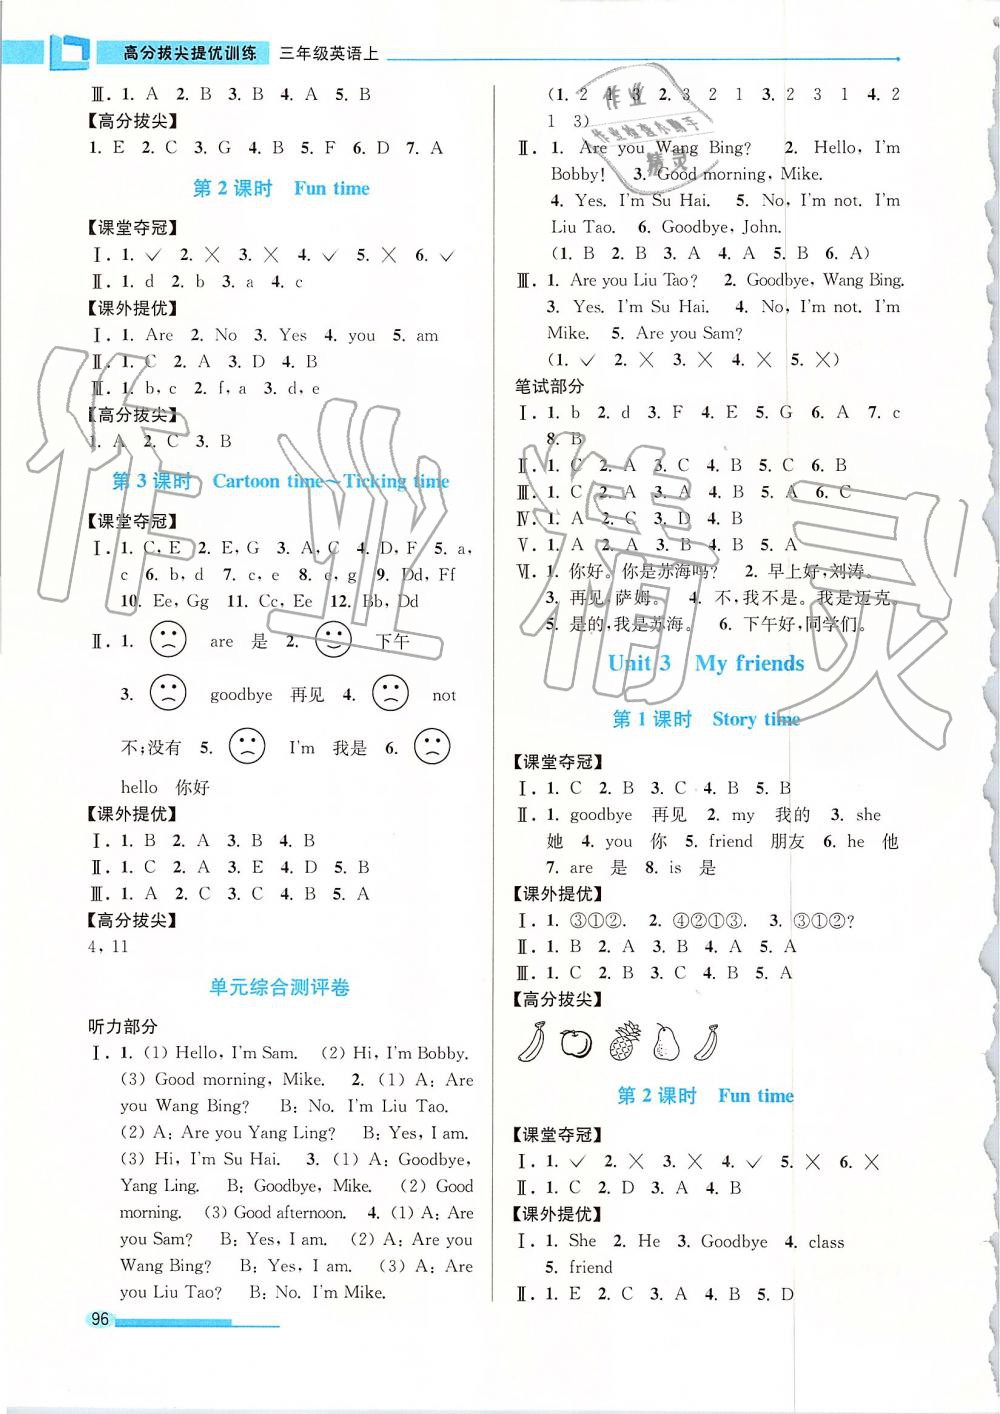 高分拔尖提优训练 三年级英语上
Ⅲ. 1. A 2. B 3. B 4. A 5. B
【高分拔尖】
1. E 2. C 3. G 4. B 5. F 6. D 7. A
第 2 课时 Fun time
【课堂夺冠】
Ⅰ. 1. ✓ 2. ╳ 3. ╳ 4. ✓ 5. ╳ 6. ✓
Ⅱ. 1. d 2. b 3. a 4. c
【课外提优】
Ⅰ. 1. Are 2. No 3. Yes 4. you 5. am
Ⅱ. 1. C 2. A 3. D 4. B
Ⅲ. 1. b, c 2. f, a 3. d, e
【高分拔尖】
1. A 2. C 3. B
第 3 课时 Cartoon time~Ticking time
【课堂夺冠】
Ⅰ. 1. C, E 2. E, G 3. A, C 4. D, F 5. a,
c 6. b, d 7. c, e 8. e, g 9. Dd, Ff
10. Ee, Gg 11. Cc, Ee 12. Bb, Dd
Ⅱ. 1. are 是 2. 下午
3. goodbye 再见 4. not
不;没有 5. I'm 我是 6.
hello 你好
【课外提优】
Ⅰ. 1. B 2. A 3. B 4. B
Ⅱ. 1. C 2. A 3. E 4. D 5. B
Ⅲ. 1. A 2. C 3. C 4. B 5. A
【高分拔尖】
4, 11
单元综合测评卷
听力部分
Ⅰ. 1. (1) Hello, I'm Sam. (2) Hi, I'm Bobby.
(3) Good morning, Mike. 2. (1) A: Are
you Wang Bing? B: No. I'm Liu Tao.
(2) A: Are you Yang Ling? B: Yes, I am.
(3) Hi, I'm Su Hai. 3. (1) A: Goodbye,
Yang Ling. B: Goodbye, Mike. (2) Good
morning. (3) Good afternoon. 4. (1) A: Are
you Sam? B: Yes, I am. (2) A: Are you
Wang Bing? B: Yes, I am. (3) A: Are
you Liu Tao? B: No. I'm Mike.
96
(1. 2 1 3 2. 3 2 1 3. 2 3 1 4. 2
1 3)
Ⅱ. 1. Are you Wang Bing? 2. Hello, I'm
Bobby! 3. Good morning, Mike.
4. Yes. I'm Su Hai. 5. No, I'm not. I'm
Liu Tao. 6. Goodbye, John.
(1. B 2. B 3. A 4. A 5. B 6. A)
Ⅲ. 1. Are you Liu Tao? 2. Goodbye, Wang Bing.
3. Yes. I'm Su Hai. 4. No, I'm not. I'm
Mike. 5. Are you Sam?
(1. ✓ 2. ╳ 3. ╳ 4. ╳ 5. ╳)
笔试部分
Ⅰ. 1. b 2. d 3. F 4. E 5. G 6. A 7. c
8. B
Ⅱ. 1. C 2. A 3. C 4. A 5. B 6. B
Ⅲ. 1. C 2. A 3. A 4. B 5. A 6. C
Ⅳ. 1. A 2. C 3. D 4. B
Ⅴ. 1. A 2. C 3. B 4. B 5. A
Ⅵ. 1. 你好。你是苏海吗? 2. 早上好,刘涛。
3. 再见,萨姆。 4. 不,我不是。我是迈克。
5. 是的,我是苏海。 6. 下午好,同学们。
Unit 3 My friends
第 1 课时 Story time
【课堂夺冠】
Ⅰ. 1. C 2. B 3. C 4. B 5. B
Ⅱ. 1. goodbye 再见 2. my 我的 3. she
她 4. you 你 5. friend 朋友 6. he 他
7. are 是 8. is 是
【课外提优】
Ⅰ. 1. ③①②. 2. ④②①③. 3. ③①②?
Ⅱ. 1. B 2. A 3. B 4. A 5. A
Ⅲ. 1. C 2. B 3. A 4. B 5. A
【高分拔尖】
第 2 课时 Fun time
【课堂夺冠】
Ⅰ. 1. ✓ 2. ╳ 3. ╳ 4. ✓ 5. ╳ 6. ╳
Ⅱ. 1. C 2. D 3. A 4. B
【课外提优】
Ⅰ. 1. She 2. He 3. Goodbye 4. class
5. friend
Ⅱ. 1. E 2. C 3. A 4. B 5. D
作业
作业检查小助手
精灵
作业精灵